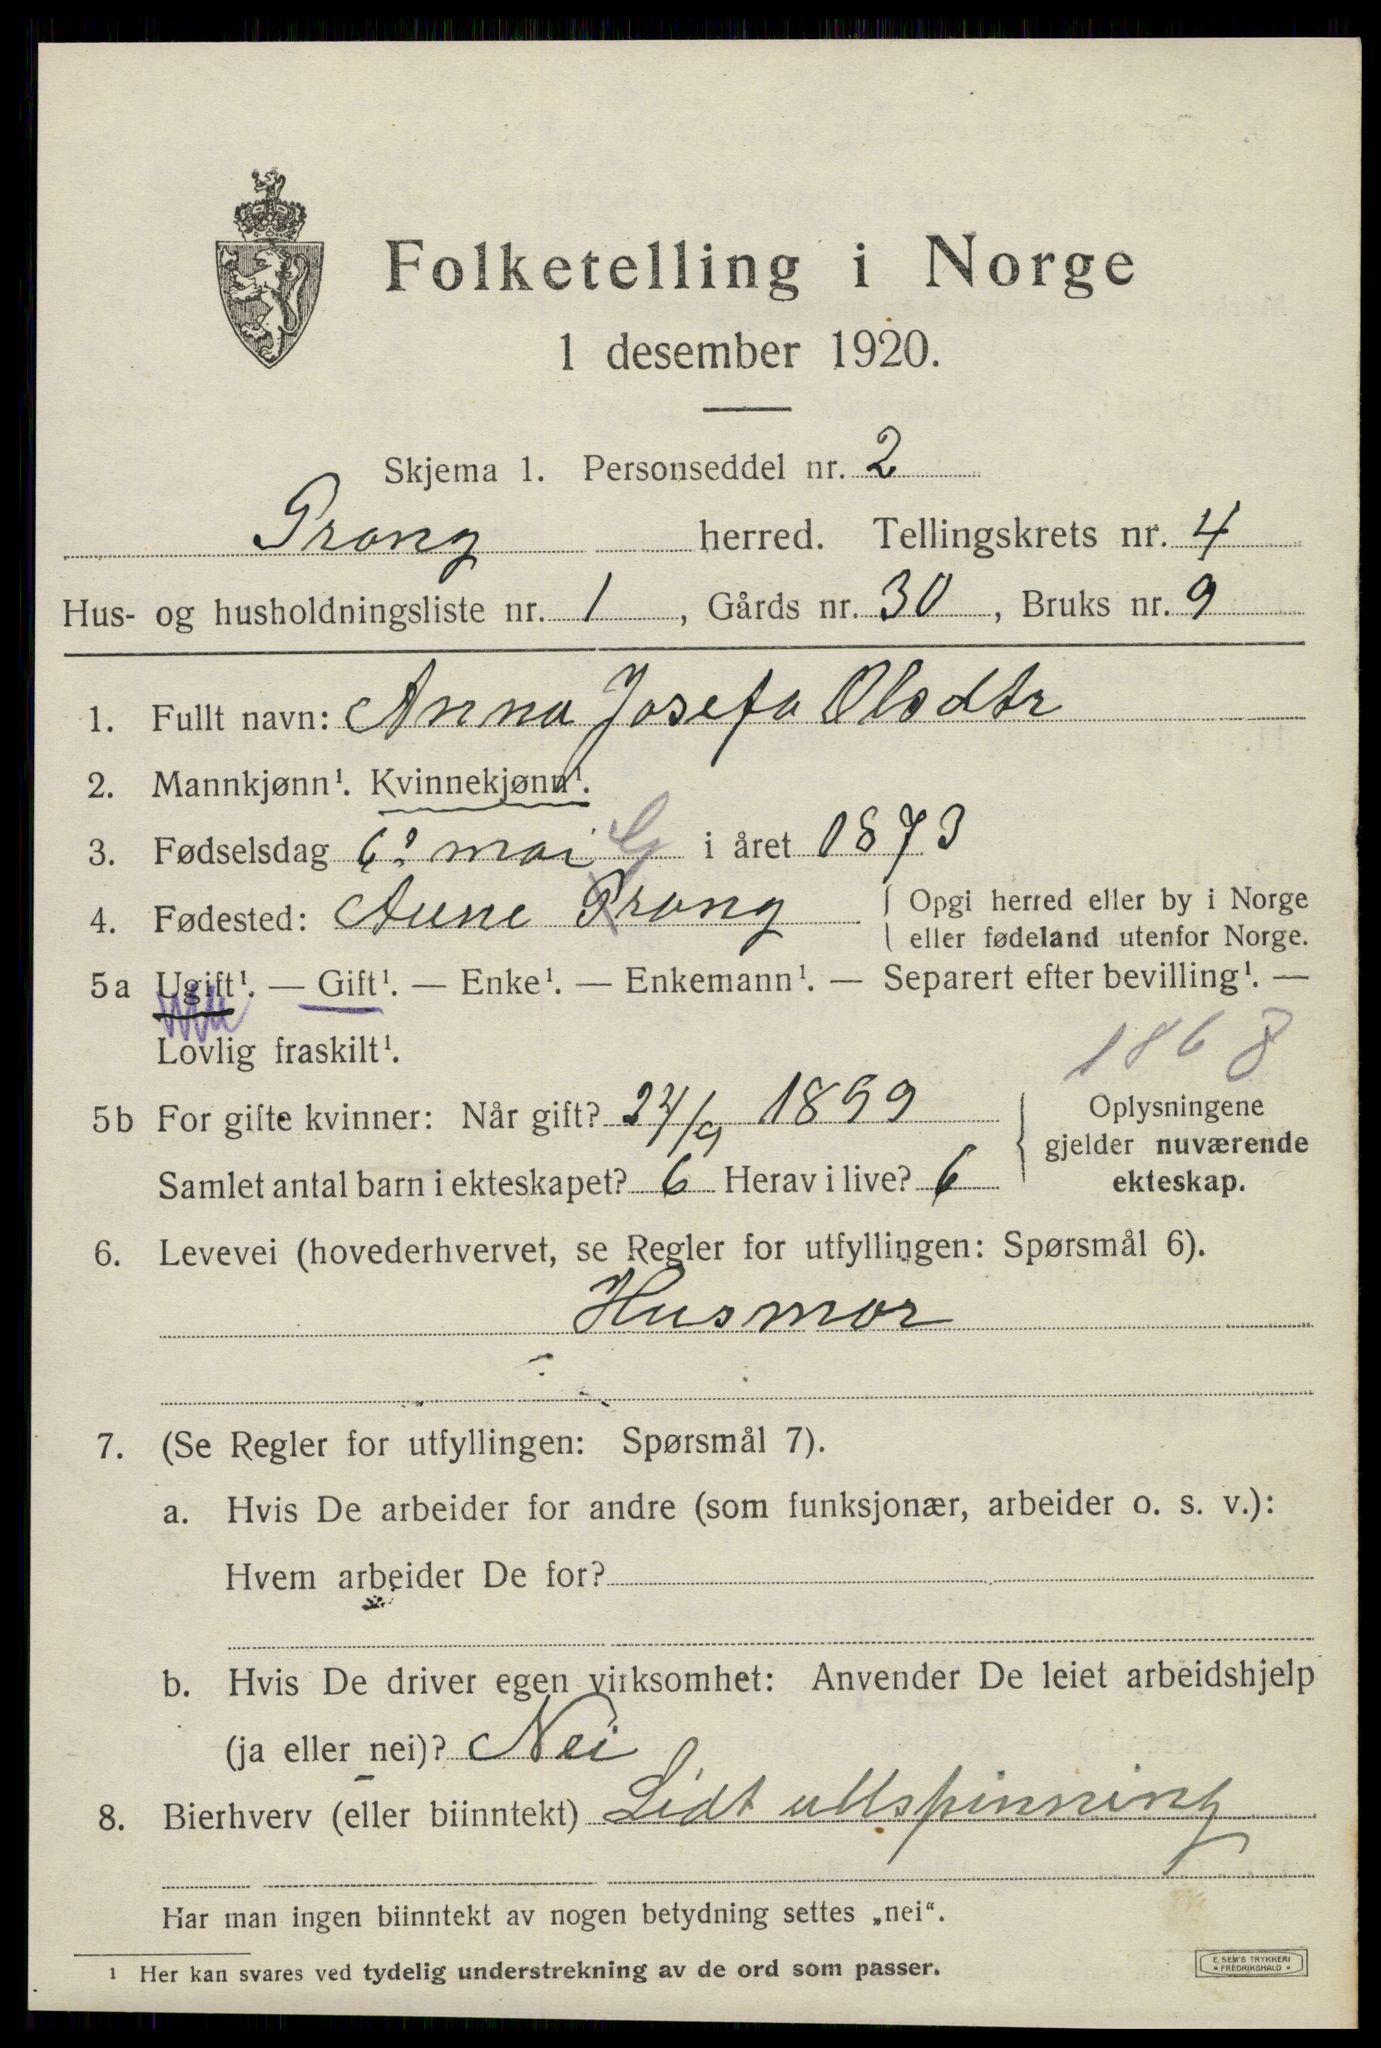 Folketelling i Norge
1 desember 1920.
Skjema 1. Personseddel nr. 2
Grong herred. Tellingskrets nr. 4
Hus- og husholdningsliste nr. 1, Gårds nr. 30, Bruks nr. 9
1. Fullt navn: Anna Josefa Olsdtr
2. Mannkjønn¹. Kvinnekjønn¹.
3. Fødselsdag 6. mai i året 1873
G
4. Fødested: Aune Grong
Opgi herred eller by i Norge
eller fødeland utenfor Norge.
5a Ugift¹. — Gift¹. — Enke¹. — Enkemann¹. — Separert efter bevilling¹. —
Lovlig fraskilt¹.
1868
5b For gifte kvinner: Når gift? 24/9 1899
Samlet antal barn i ekteskapet? 6 Herav i live? 6
Oplysningene
gjelder nuværende
ekteskap.
6. Levevei (hovederhvervet, se Regler for utfyllingen: Spørsmål 6).
Husmor
7. (Se Regler for utfyllingen: Spørsmål 7).
a. Hvis De arbeider for andre (som funksjonær, arbeider o. s. v.):
Hvem arbeider De for?
b. Hvis De driver egen virksomhet: Anvender De leiet arbeidshjelp
(ja eller nei)? Nei
8. Bierhverv (eller biinntekt) Lidt ullspinning
Har man ingen biinntekt av nogen betydning settes „nei“.
¹ Her kan svares ved tydelig understrekning av de ord som passer.
E. SEM'S TRYKKERI
FREDRIKSHALD